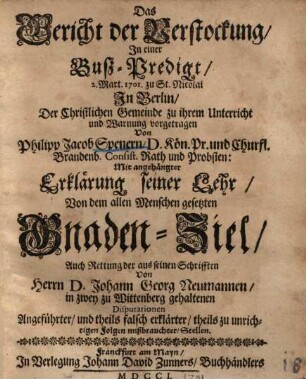 Das
Gericht der Verstockung/
In einer
Buß-Predigt/
2. Mart. 1701. zu St. Nicolai
In Berlin/
Der Christlichen Gemeinde zu ihrem Unterricht
und Warnung vorgetragen
Von
Philipp Jacob Spenern/ D. Kön. Pr. und Churfl.
Brandenb. Consist. Rath und Probsten:
Mit angehängter
Erklärung seiner Lehr/
Von dem allen Menschen gesetzten
Gnaden-Ziel/
Auch Rettung der aus seinen Schrifften
Von
Herrn D. Johann Georg Neumannen/
in zwey zu Wittenberg gehaltenen
Disputationen
Angeführter/ und theils falsch erklärter/ theils zu unrich-
tigen Folgen mißbrauchter/ Stellen.
Franckfurt am Mayn/
In Verlegung Johann David Zunners/ Buchhändlers
MDCCI.